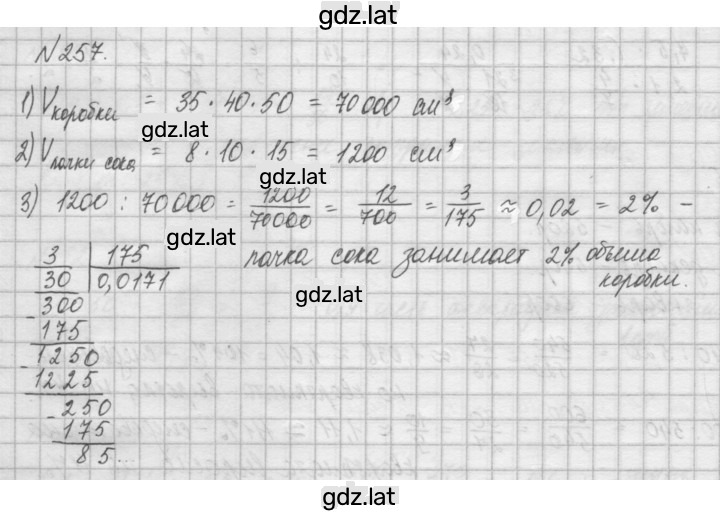 gdz.lat
№257.
1) Vкоробки = 35 · 40 · 50 = 70000 см³
gdz.lat
2) Vпачки сока = 8 · 10 · 15 = 1200 см³
gdz.lat
3) 1200 : 70000 = 1200/70000 = 12/700 = 3/175 ≈ 0,02 = 2% -
gdz.lat
пачка сока занимает 2% объёма
коробки.
gdz.lat
3 | 175
30 | 0,0171
- 300
175
- 1250
1225
- 250
175
85...
gdz.lat